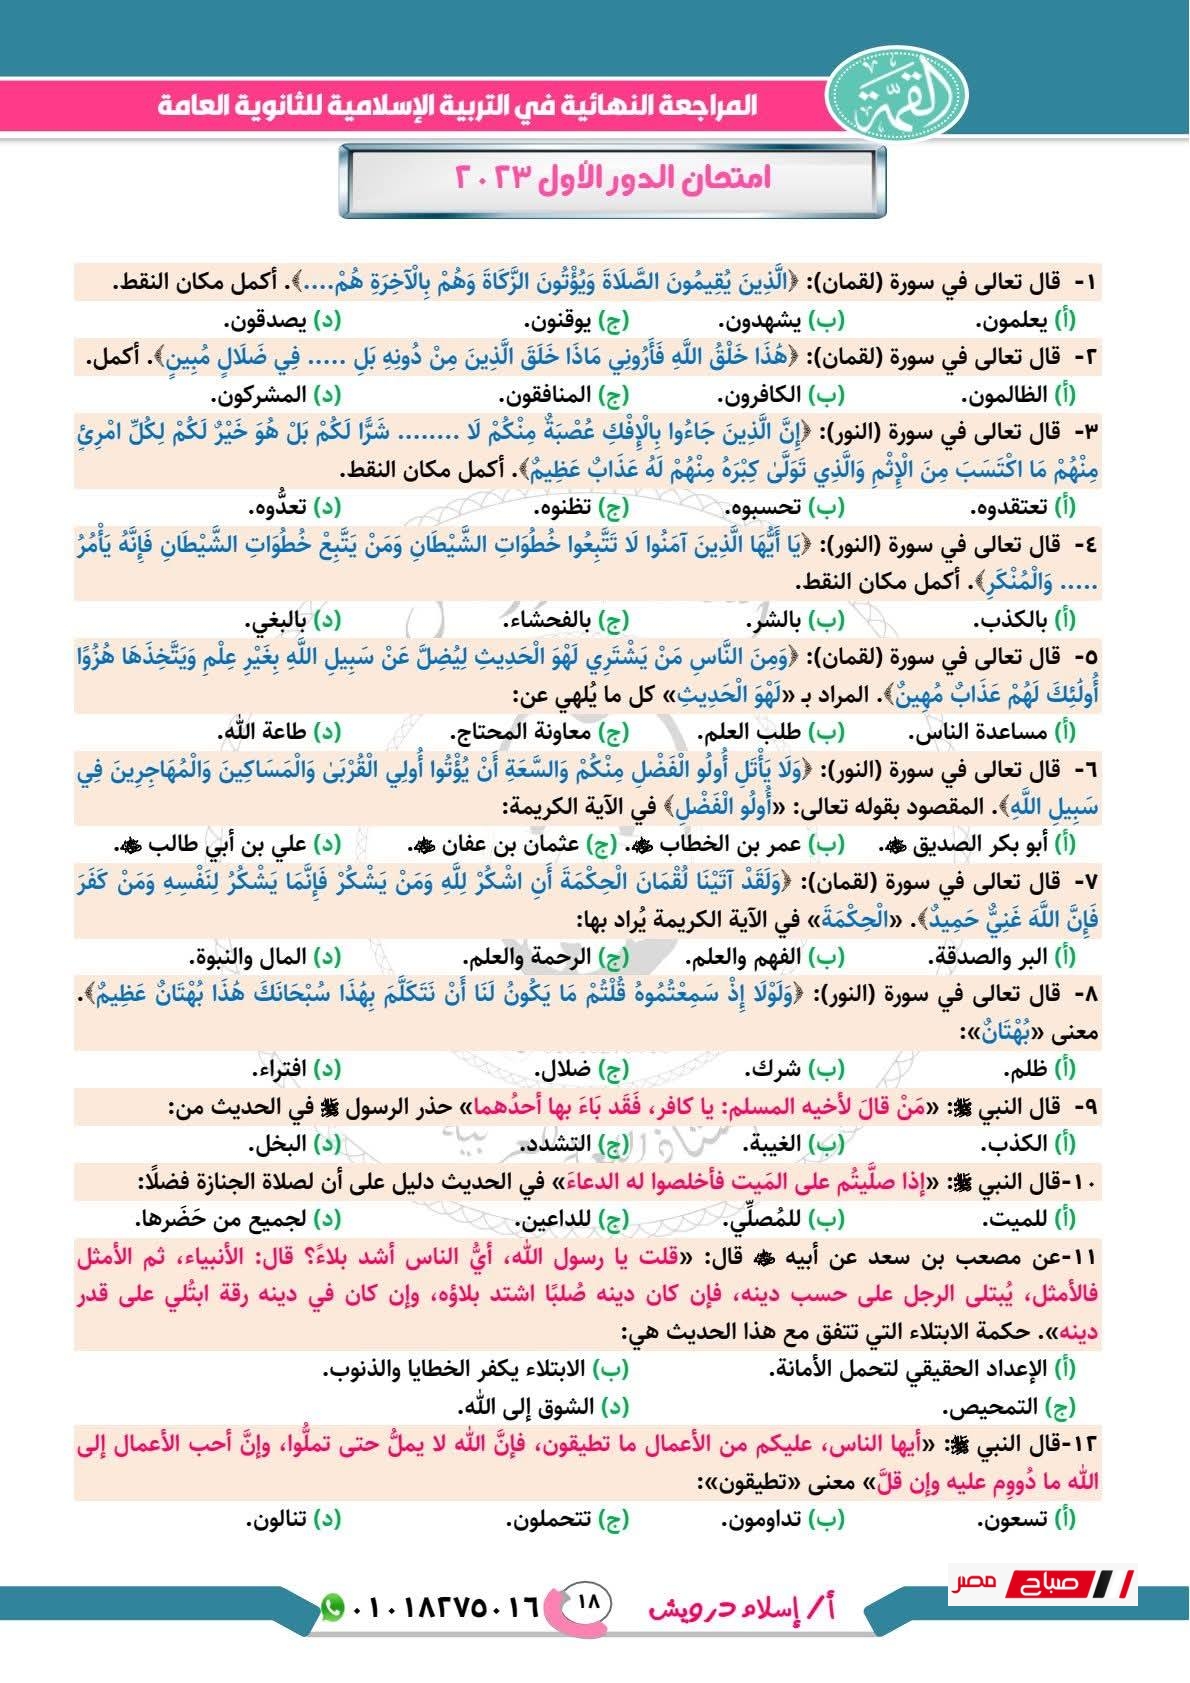 القمة
المراجعة النهائية في التربية الإسلامية للثانوية العامة
امتحان الدور الأول ٢٠٢٣
١- قال تعالى في سورة (لقمان): ﴿الَّذِينَ يُقِيمُونَ الصَّلَاةَ وَيُؤْتُونَ الزَّكَاةَ وَهُمْ بِالْآخِرَةِ هُمْ....﴾. أكمل مكان النقط.
(أ) يعلمون. (ب) يشهدون. (ج) يوقنون. (د) يصدقون.
٢- قال تعالى في سورة (لقمان): ﴿هَٰذَا خَلْقُ اللَّهِ فَأَرُونِي مَاذَا خَلَقَ الَّذِينَ مِنْ دُونِهِ بَلِ ..... فِي ضَلَالٍ مُبِينٍ﴾. أكمل.
(أ) الظالمون. (ب) الكافرون. (ج) المنافقون. (د) المشركون.
٣- قال تعالى في سورة (النور): ﴿إِنَّ الَّذِينَ جَاءُوا بِالْإِفْكِ عُصْبَةٌ مِنْكُمْ لَا ........ شَرًّا لَكُمْ بَلْ هُوَ خَيْرٌ لَكُمْ لِكُلِّ امْرِئٍ
مِنْهُمْ مَا اكْتَسَبَ مِنَ الْإِثْمِ وَالَّذِي تَوَلَّىٰ كِبْرَهُ مِنْهُمْ لَهُ عَذَابٌ عَظِيمٌ﴾. أكمل مكان النقط.
(أ) تعتقدوه. (ب) تحسبوه. (ج) تظنوه. (د) تعدُّوه.
٤- قال تعالى في سورة (النور): ﴿يَا أَيُّهَا الَّذِينَ آمَنُوا لَا تَتَّبِعُوا خُطُوَاتِ الشَّيْطَانِ وَمَنْ يَتَّبِعْ خُطُوَاتِ الشَّيْطَانِ فَإِنَّهُ يَأْمُرُ
..... وَالْمُنْكَرِ﴾. أكمل مكان النقط.
(أ) بالكذب. (ب) بالشر. (ج) بالفحشاء. (د) بالبغي.
٥- قال تعالى في سورة (لقمان): ﴿وَمِنَ النَّاسِ مَنْ يَشْتَرِي لَهْوَ الْحَدِيثِ لِيُضِلَّ عَنْ سَبِيلِ اللَّهِ بِغَيْرِ عِلْمٍ وَيَتَّخِذَهَا هُزُوًا
أُولَٰئِكَ لَهُمْ عَذَابٌ مُهِينٌ﴾. المراد بـ «لَهْوَ الْحَدِيثِ» كل ما يُلهي عن:
(أ) مساعدة الناس. (ب) طلب العلم. (ج) معاونة المحتاج. (د) طاعة الله.
٦- قال تعالى في سورة (النور): ﴿وَلَا يَأْتَلِ أُولُو الْفَضْلِ مِنْكُمْ وَالسَّعَةِ أَنْ يُؤْتُوا أُولِي الْقُرْبَىٰ وَالْمَسَاكِينَ وَالْمُهَاجِرِينَ فِي
سَبِيلِ اللَّهِ﴾. المقصود بقوله تعالى: «أُولُو الْفَضْلِ﴾ في الآية الكريمة:
(أ) أبو بكر الصديق ﵁. (ب) عمر بن الخطاب ﵁. (ج) عثمان بن عفان ﵁. (د) علي بن أبي طالب ﵁.
٧- قال تعالى في سورة (لقمان): ﴿وَلَقَدْ آتَيْنَا لُقْمَانَ الْحِكْمَةَ أَنِ اشْكُرْ لِلَّهِ وَمَنْ يَشْكُرْ فَإِنَّمَا يَشْكُرُ لِنَفْسِهِ وَمَنْ كَفَرَ
فَإِنَّ اللَّهَ غَنِيٌّ حَمِيدٌ﴾. «الْحِكْمَةَ» في الآية الكريمة يُراد بها:
(أ) البر والصدقة. (ب) الفهم والعلم. (ج) الرحمة والعلم. (د) المال والنبوة.
٨- قال تعالى في سورة (النور): ﴿وَلَوْلَا إِذْ سَمِعْتُمُوهُ قُلْتُمْ مَا يَكُونُ لَنَا أَنْ نَتَكَلَّمَ بِهَٰذَا سُبْحَانَكَ هَٰذَا بُهْتَانٌ عَظِيمٌ﴾.
معنى «بُهْتَانٌ»:
(أ) ظلم. (ب) شرك. (ج) ضلال. (د) افتراء.
٩- قال النبي ﷺ: «مَنْ قالَ لأخيه المسلم: يا كافر، فَقَد بَاءَ بها أحدُهما» حذر الرسول ﷺ في الحديث من:
(أ) الكذب. (ب) الغيبة. (ج) التشدد. (د) البخل.
١٠-قال النبي ﷺ: «إذا صلَّيتُم على المَيت فأخلصوا له الدعاءَ» في الحديث دليل على أن لصلاة الجنازة فضلًا:
(أ) للميت. (ب) للمُصلِّي. (ج) للداعين. (د) لجميع من حَضَرها.
١١-عن مصعب بن سعد عن أبيه ﵁ قال: «قلت يا رسول الله، أيُّ الناس أشد بلاءً؟ قال: الأنبياء، ثم الأمثل
فالأمثل، يُبتلى الرجل على حسب دينه، فإن كان دينه صُلبًا اشتد بلاؤه، وإن كان في دينه رقة ابتُلي على قدر
دينه». حكمة الابتلاء التي تتفق مع هذا الحديث هي:
(أ) الإعداد الحقيقي لتحمل الأمانة. (ب) الابتلاء يكفر الخطايا والذنوب.
(ج) التمحيص. (د) الشوق إلى الله.
١٢-قال النبي ﷺ: «أيها الناس، عليكم من الأعمال ما تطيقون، فإنَّ الله لا يملُّ حتى تملُّوا، وإنَّ أحب الأعمال إلى
الله ما دُووِم عليه وإن قلَّ» معنى «تطيقون»:
(أ) تسعون. (ب) تداومون. (ج) تتحملون. (د) تنالون.
صباح مصر
أ/ إسلام درويش ١٨ ٠١٠١٨٢٧٥٠١٦